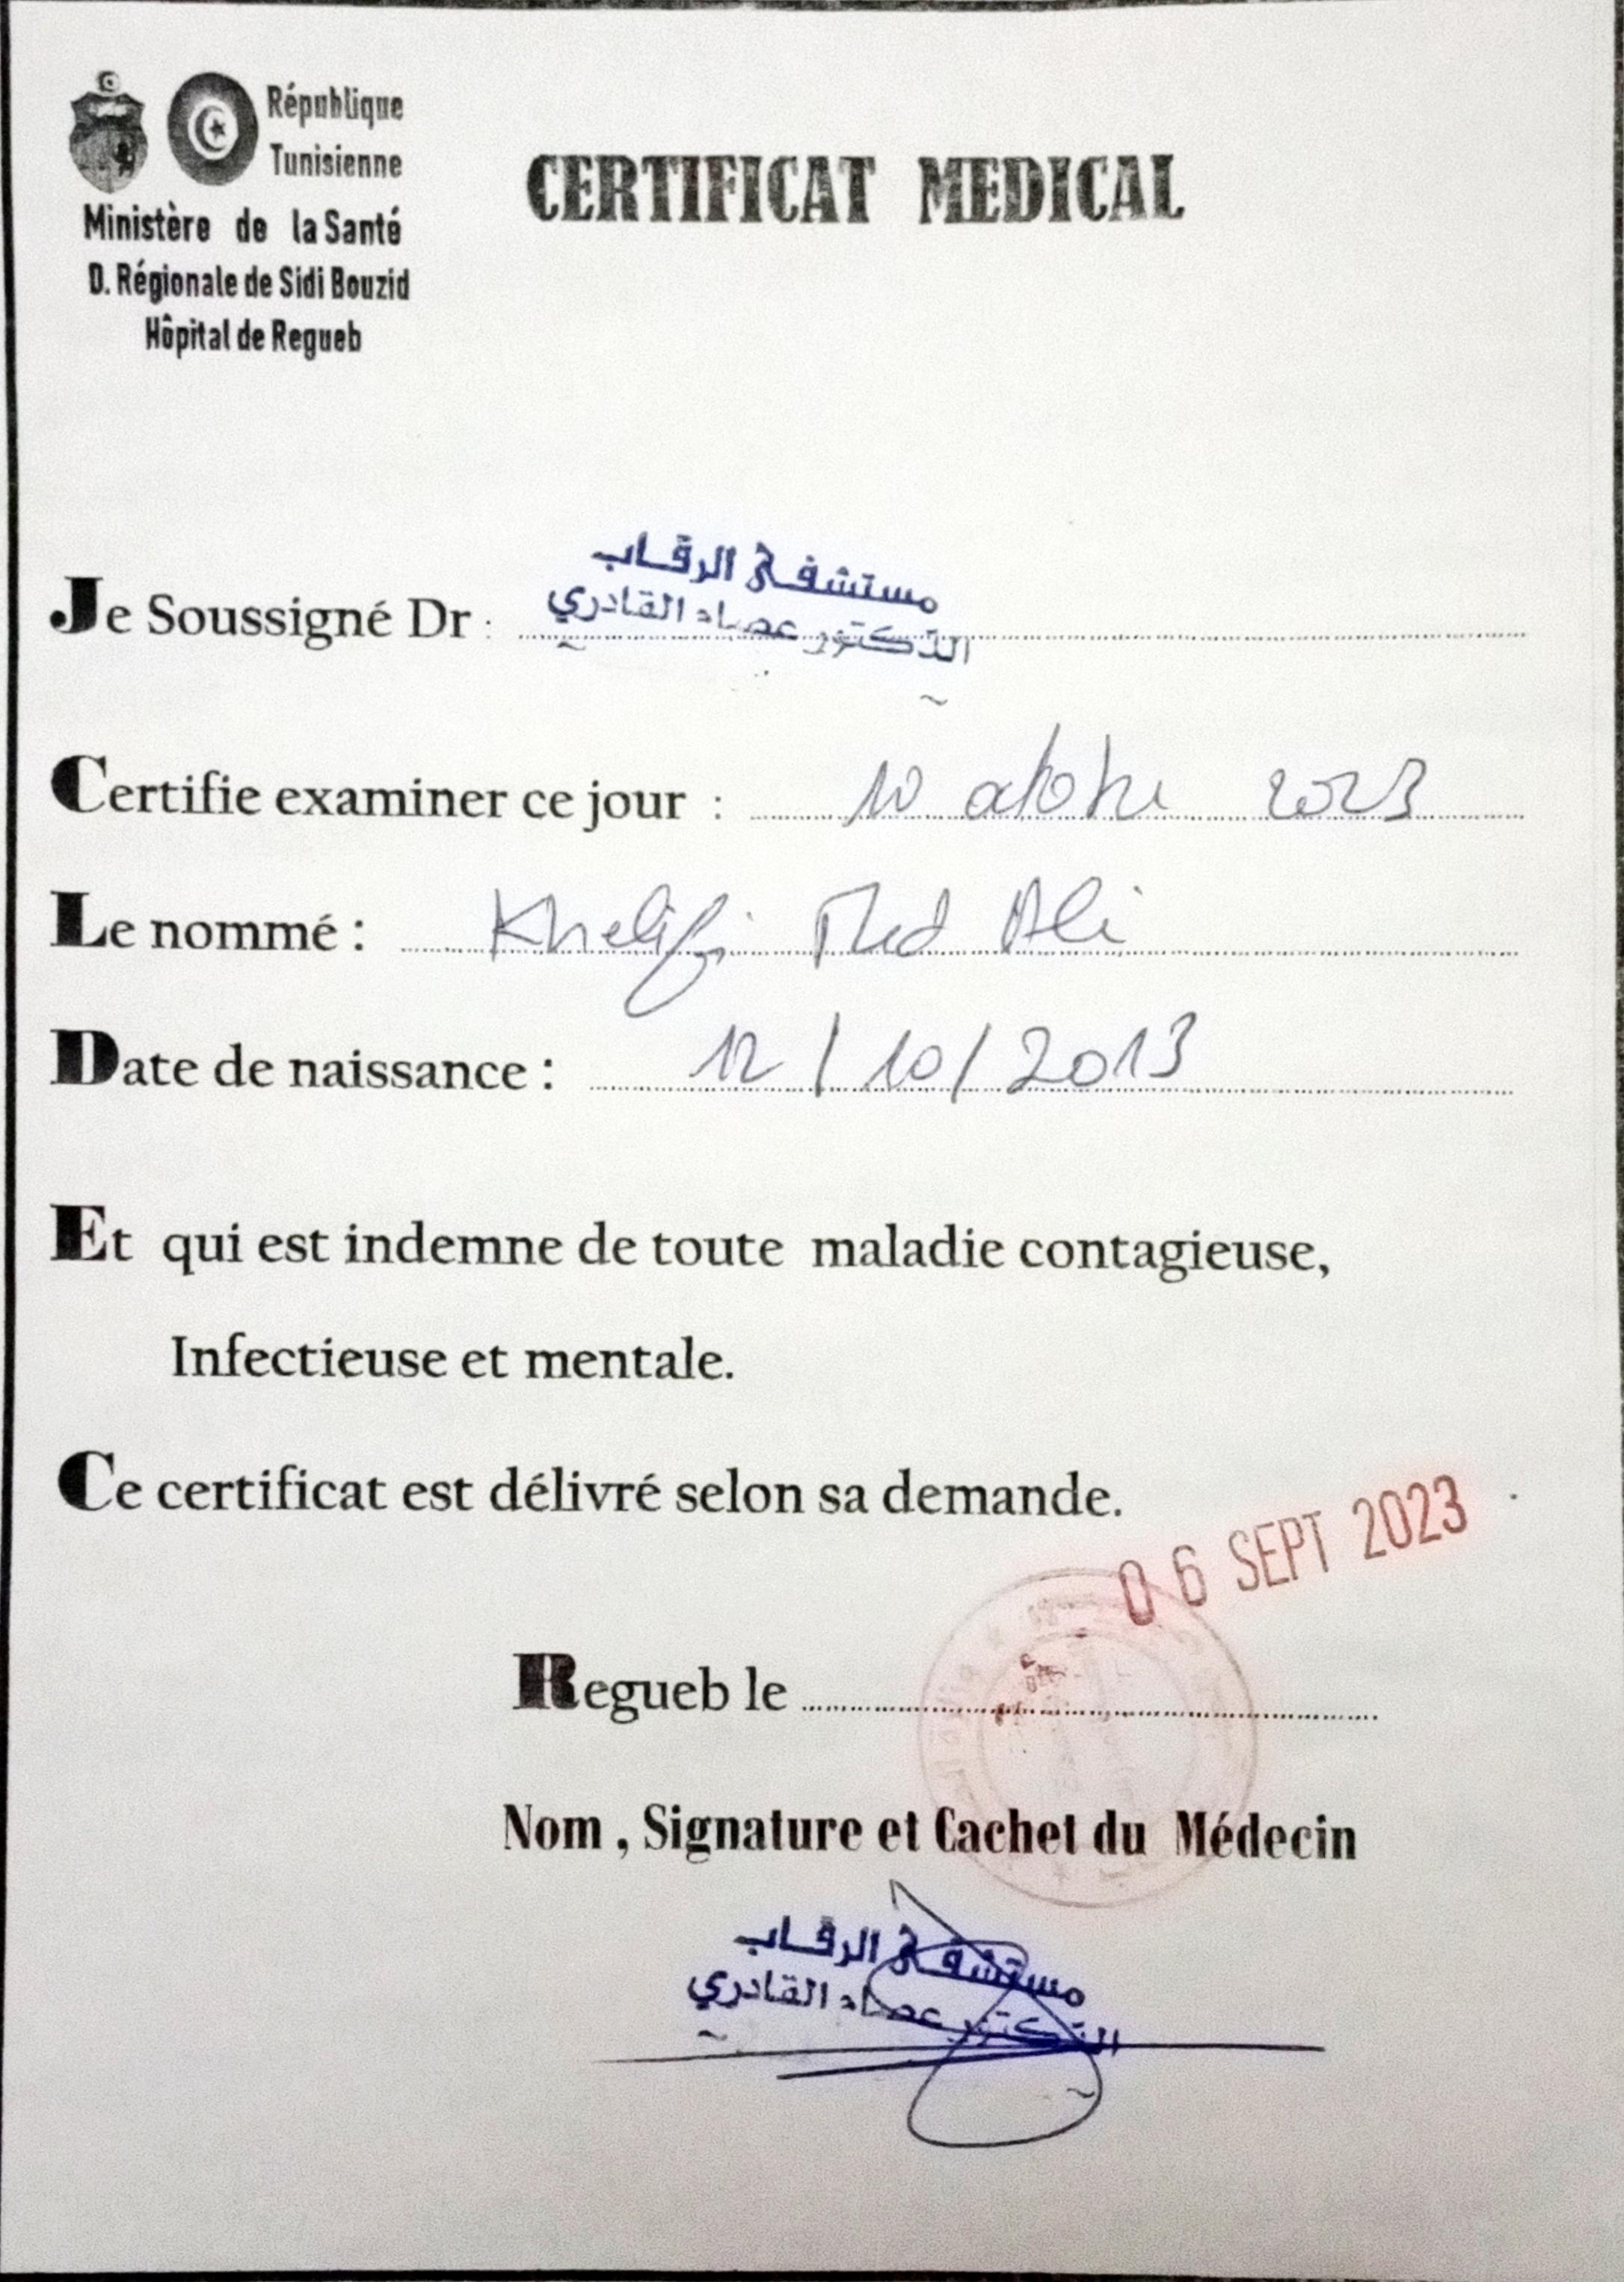 République
Tunisienne
Ministère de la Santé
D. Régionale de Sidi Bouzid
Hôpital de Regueb
CERTIFICAT MEDICAL
Je Soussigné Dr :
مستشفى الرقاب
الدكتور عصاد القادري
Certifie examiner ce jour : 10 octobre 2023
Le nommé : Khelifi Med Ali
Date de naissance : 12/10/2013
Et qui est indemne de toute maladie contagieuse,
Infectieuse et mentale.
Ce certificat est délivré selon sa demande.
06 SEPT 2023
Regueb le
Nom , Signature et Cachet du Médecin
مستشفى الرقاب
الدكتور عصاد القادري